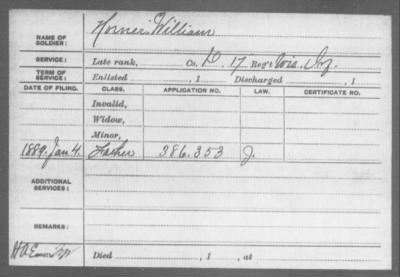 NAME OF SOLDIER: Horner William
SERVICE: Late rank, Co. D. 17 Reg't Wis. Inf.
TERM OF SERVICE: Enlisted , 1 Discharged , 1
DATE OF FILING. CLASS. APPLICATION NO. LAW. CERTIFICATE NO.
Invalid,
Widow,
Minor,
1889. Jan 4. Father 386.353 J.
ADDITIONAL SERVICES:
REMARKS:
Died , 1 , at